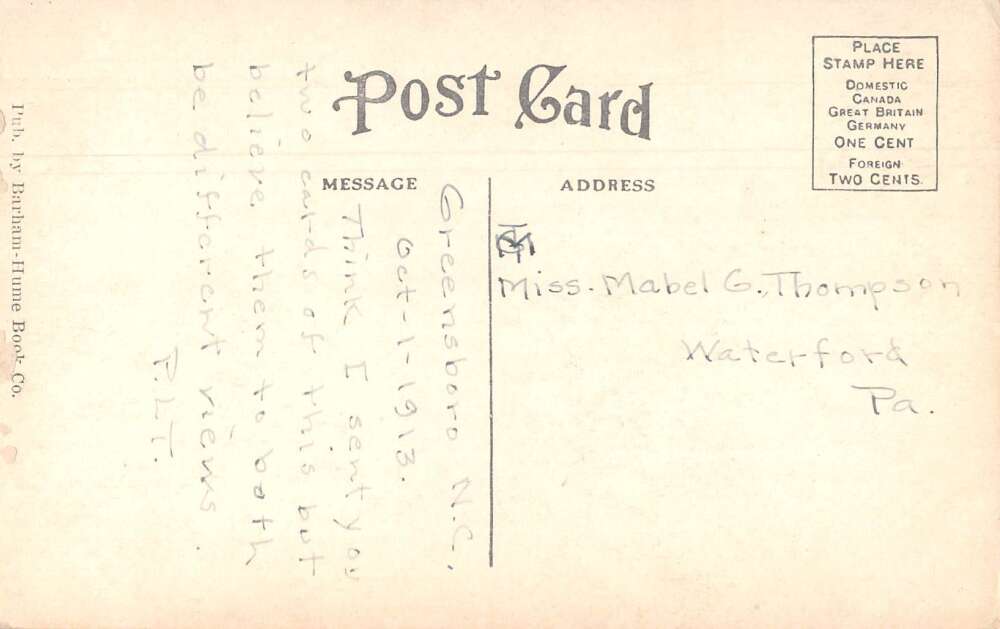 POST CARD
PLACE
STAMP HERE
DOMESTIC
CANADA
GREAT BRITAIN
GERMANY
ONE CENT
FOREIGN
TWO CENTS.
MESSAGE
ADDRESS
Greensboro N.C.,
Oct-1-1913.
Think I sent you
two cards of this but
believe them to both
be different views.
P.L.T.
Miss. Mabel G. Thompson
Waterford
Pa.
Pub. by Barham-Hume Book Co.